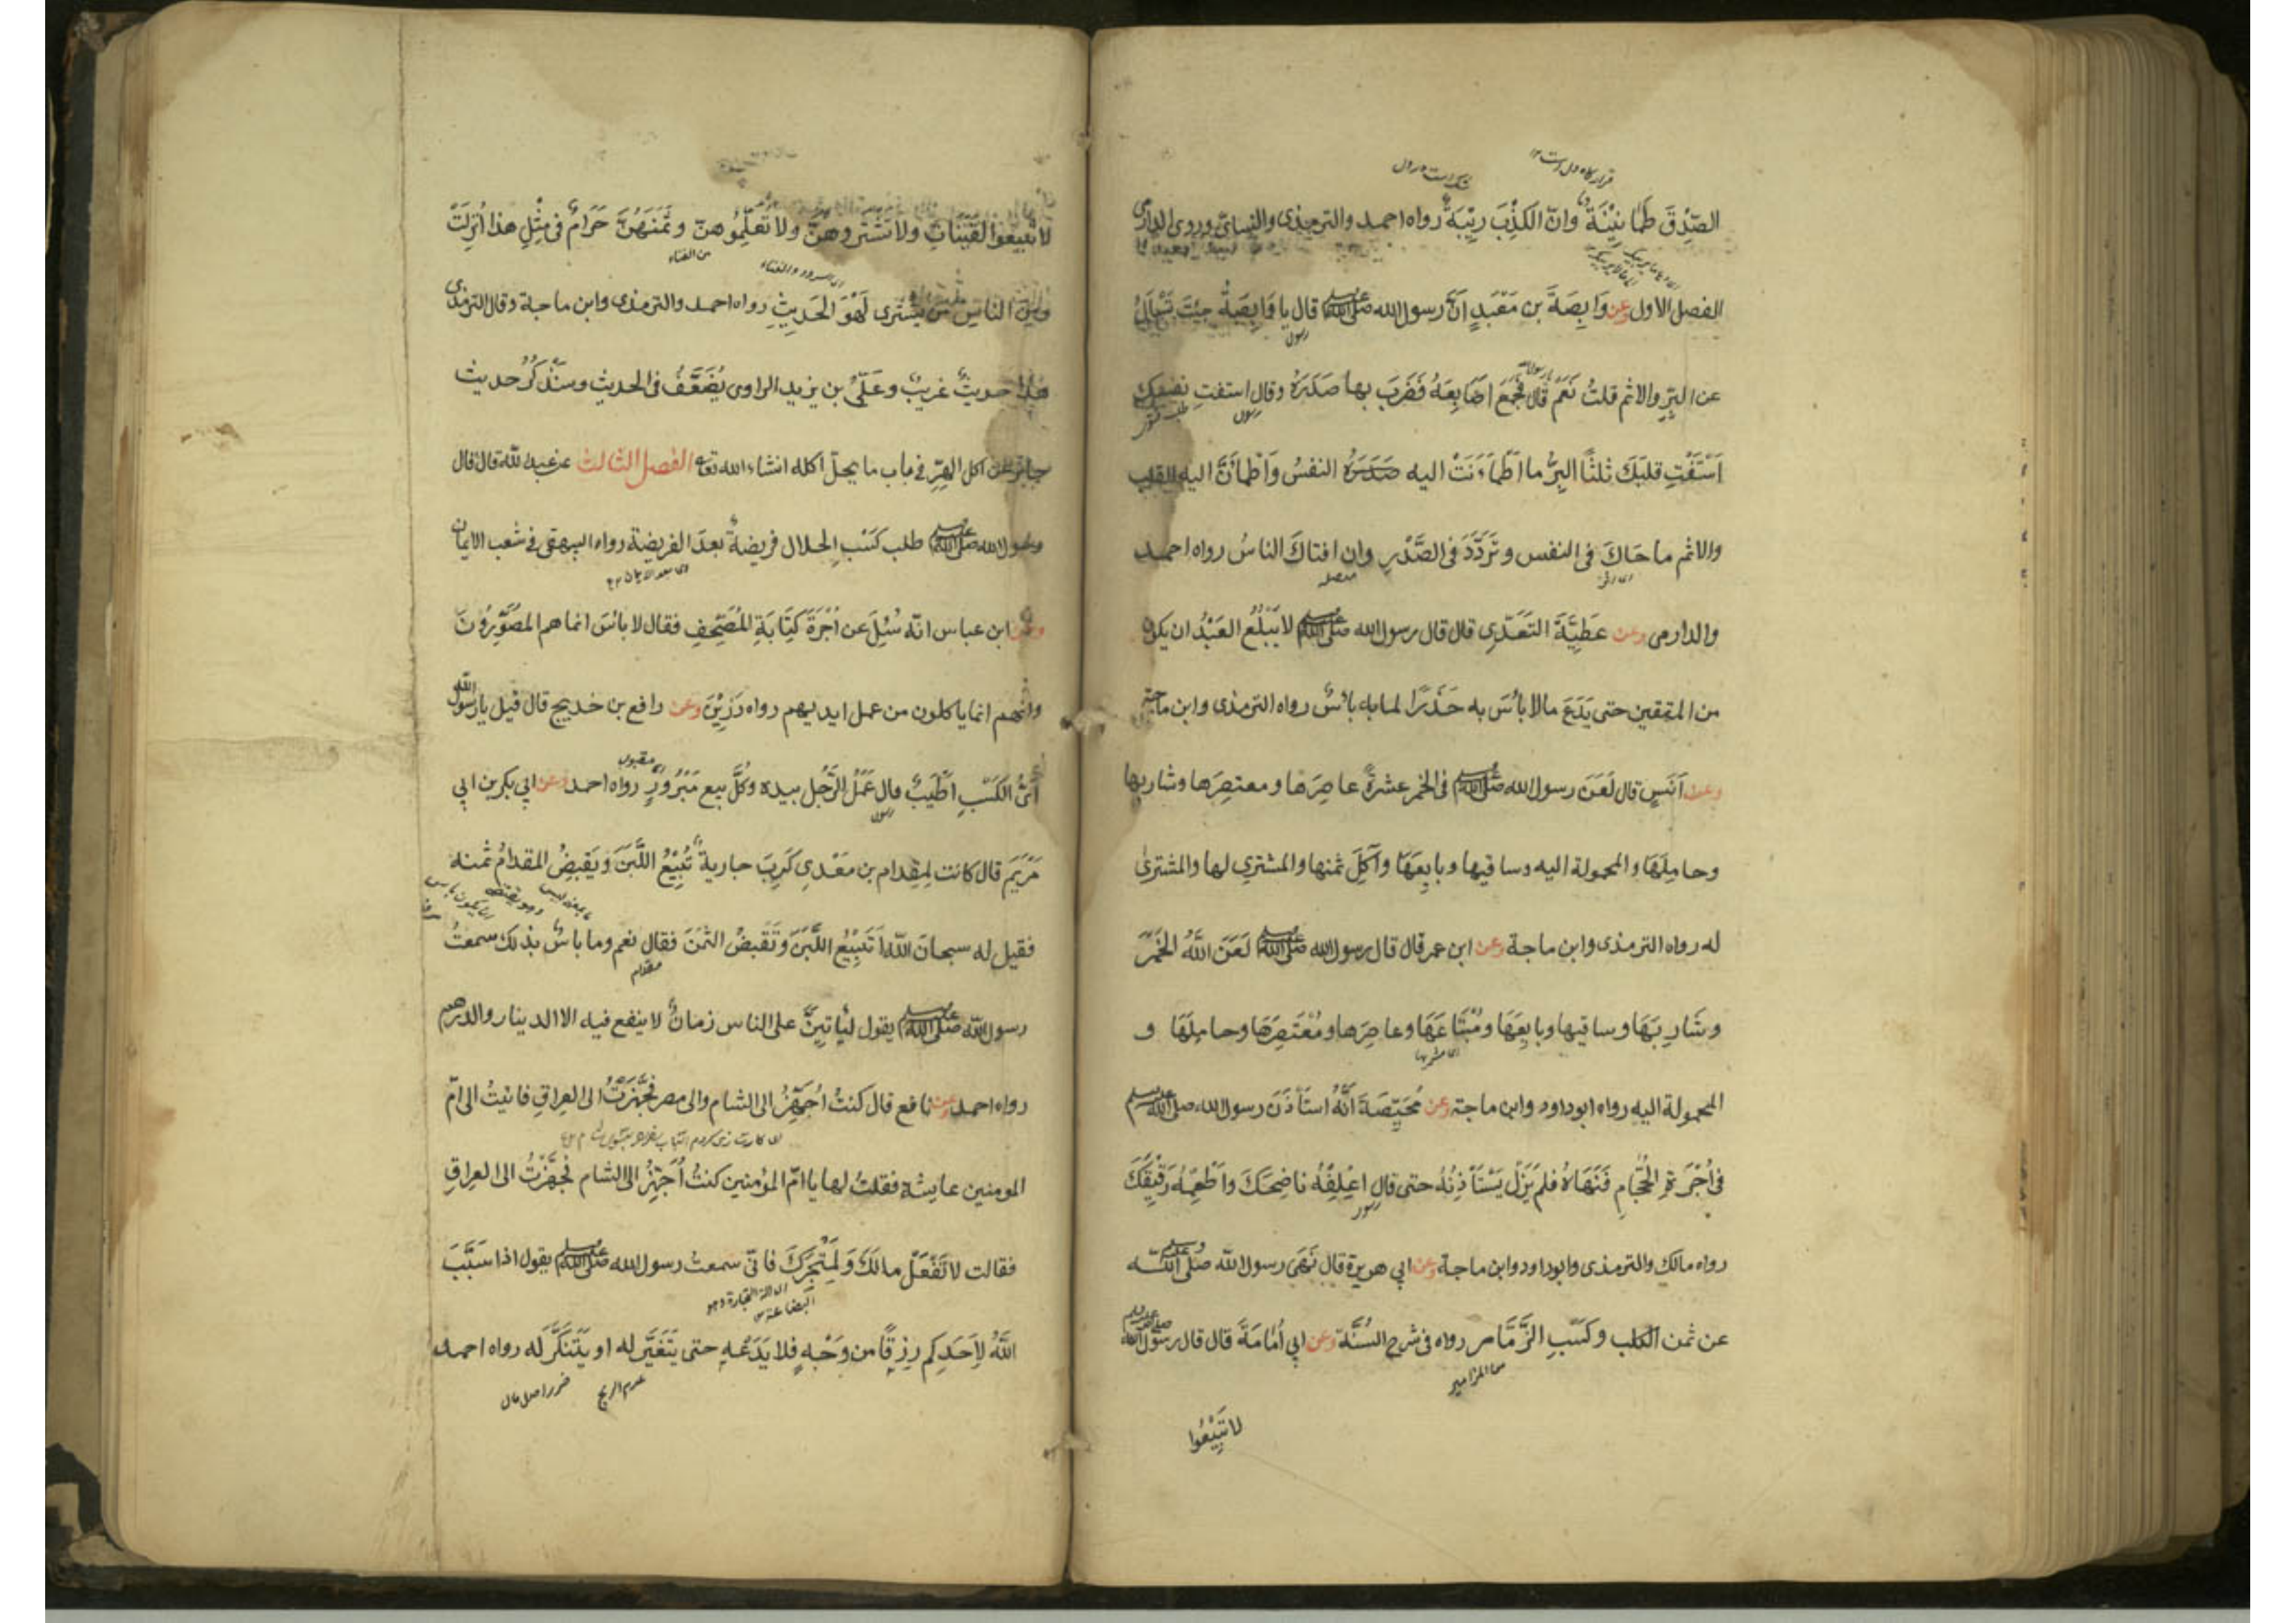 الصِّدْقَ طُمَانِيْنَةٌ وانّ الكَذِبَ رِيْبَةٌ رواه احمد والترمذى والنسائى وروى الدارمى
الفصل الاول وعن وَابِصَةَ بن مَعْبَدٍ انّ رسول الله صلى الله عليه وسلم قال يا وَابِصَةُ جِئْتَ تَسْأَلُ
عن البِرِّ والاثم قلتُ نَعَمْ قال فَجَمَعَ اَصَابِعَهُ فَضَرَبَ بها صَدْرَهُ وقال استفتِ نفسك
اَسْتَفْتِ قلبَكَ ثلثًا البِرُّ ما اطْمَأَنَتْ اليه النفسُ وَاطْمَأَنَّ اليه القلب
والاثم ما حَاكَ فى النفس وتَرَدَّدَ فى الصَّدْرِ وان افتاكَ الناسُ رواه احمد
والدارمى وعن عَطِيَّةَ السَّعْدِى قال قال رسول الله صلى الله عليه وسلم لا يَبْلُغُ العَبْدُ ان يكون
من المتقين حتى يَدَعَ مالا بأسَ به حَذَرًا لما به بأسٌ رواه الترمذى وابن ماجة
وعن اَنَسٍ قال لَعَنَ رسول الله صلى الله عليه وسلم فى الخمر عشرةً عاصِرَها ومعتصِرَها وشاربها
وحامِلَهَا والمحمولة اليه وساقيها وبايِعَهَا وآكِلَ ثمنها والمشتري لها والمشترىٰ
له رواه الترمذى وابن ماجة وعن ابن عمر قال قال رسول الله صلى الله عليه وسلم لَعَنَ اللَّهُ الخَمْرَ
وشَارِبَهَا وساقيها وبايِعَهَا ومُبْتَاعَهَا وعاصِرَها ومُعْتَصِرَهَا وحامِلَهَا و
المحمولة اليه رواه ابوداود وابن ماجة وعن مُحَيِّصَةَ اَنَّهُ استَأذَنَ رسول الله صلى الله عليه وسلم
فى اُجْرَةِ الحَجَّامِ فَنَهَاهُ فلم يَزَلْ يَسْتَأذِنُهُ حتى قال اعْلِفْهُ ناضِحَكَ واَطْعِمْهُ رَقِيْقَكَ
رواه مالك والترمذى وابوداود وابن ماجة وعن ابي هريرة قال نَهَى رسول الله صلى الله عليه وسلم
عن ثمن الكلب وكَسْبِ الزَّمَّارة رواه فى شرح السُّنَّة وعن ابي اُمَامَةَ قال قال رسول الله صلى الله عليه وسلم
لا تَبِيْعُوا
لا تَبِيْعُوا القَيْنَاتِ ولا تَشْتَرُوهُنّ ولا تُعَلِّمُوهنّ وثَمَنُهُنَّ حَرَامٌ فى مِثْلِ هذا اُنْزِلَتْ
ومِنَ الناسِ مَنْ يَّشْتَرِى لَهْوَ الحَدِيْثِ رواه احمد والترمذى وابن ماجة وقال الترمذى
هذا حديثٌ غريبٌ وعَلىُّ بن يزيد الراوى يُضَعَّفُ فى الحديث وسَنَذْكُرُ حديث
جابر نهى عن اكل الهِرِّ فى باب ما يحلّ اكله انشاء الله تعالى الفصل الثالث عن عبد الله قال قال
رسول الله صلى الله عليه وسلم طلب كَسْبِ الحلال فريضةٌ بعدَ الفريضة رواه البيهقى فى شعب الايمان
وعن ابن عباس انّه سُئِلَ عن اُجْرَةِ كِتَابَةِ المُصْحَفِ فقال لا بأسَ انما هم المصَوِّرُونَ
وانهم انما ياكلون من عمل ايديهم رواه رَزِيْن وعن رافع بن خديج قال قيل يا رسول الله
اَىُّ الكَسْبِ اَطْيَبُ قال عَمَلُ الرَّجُل بيده وكُلُّ بيع مَبْرُورٍ رواه احمد وعن ابي بكر بن ابي
مَرْيَمَ قال كانت لِمِقدام بن مَعْدِي كَرِبَ جاريةٌ تَبِيْعُ اللَّبَنَ وَيَقبِضُ المقدامُ ثمنه
فقيل له سبحانَ اللّه اَتَبِيْعُ اللَّبَنَ وتَقْبِضُ الثمَنَ فقال نعم وما باسٌ بذلك سمعتُ
رسول اللّه صلى الله عليه وسلم يقول ليَأتِيَنَّ على الناس زمانٌ لا ينفع فيه الا الدينار والدرهم
رواه احمد وعن نافع قال كنتُ اُجَهِّزُ الى الشام والى مصر فجَهَّزْتُ الى العِراقِ فاتيتُ الى امّ
المومنين عايشة فقلتُ لها يا امّ المؤمنين كنتُ اُجَهِّزُ الى الشام فجَهَّزْتُ الى العراقِ
فقالت لا تَفْعَلْ مالَكَ وَلِمَتْجَرِكَ فانّى سمعت رسول الله صلى الله عليه وسلم يقول اذا سَبَّبَ
اللَّهُ لِاَحَدِكم رِزْقًا من وَجْهٍ فلا يَدَعْهِ حتى يَتَغَيَّرَ له او يَتَنَكَّرَ له رواه احمد